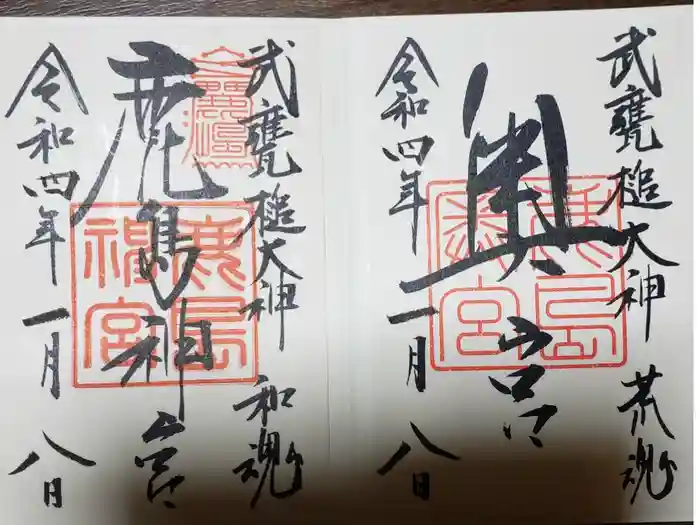 武甕槌大神 荒魂
奥宮
鹿島神宮
令和四年一月八日
武甕槌大神 和魂
鹿島神宮
鹿島神宮
令和四年一月八日